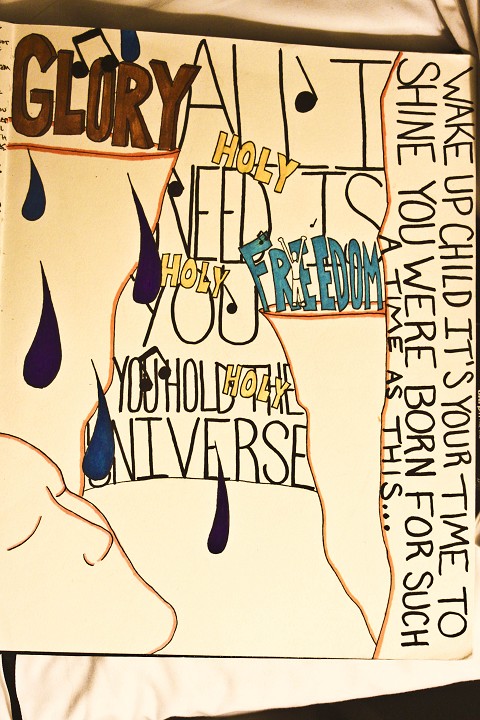 GLORY
ALL I
HOLY
NEED IS
HOLY
FREEDOM
YOU
YOU HOLD THE
HOLY
UNIVERSE
WAKE UP CHILD IT'S YOUR TIME TO
SHINE YOU WERE BORN FOR SUCH
A TIME AS THIS...